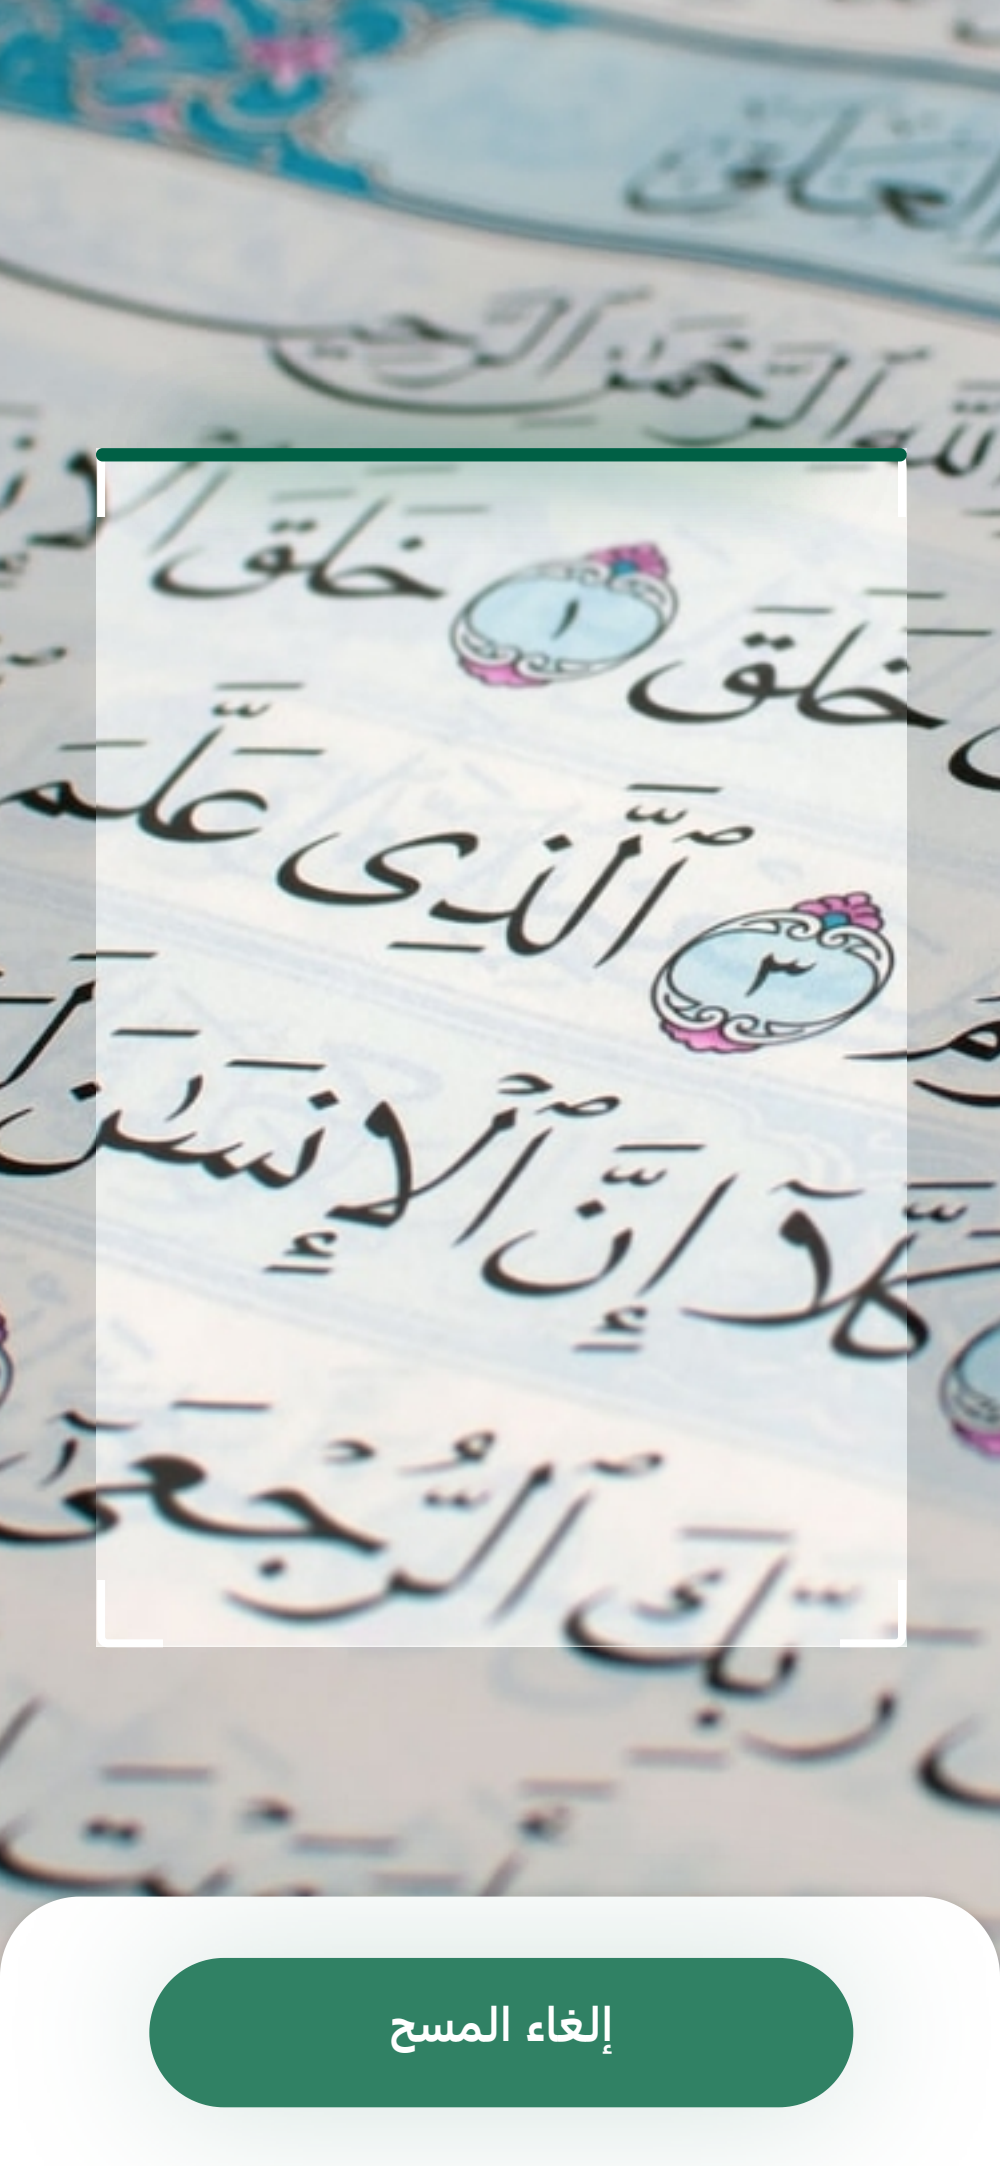 العلق
ٱلرَّحْمَٰنِ ٱلرَّحِيمِ
خَلَقَ ١ خَلَقَ
٣ ٱلَّذِى عَلَّمَ
كَلَّآ إِنَّ ٱلْإِنسَٰنَ
رَبِّكَ ٱلرُّجْعَىٰٓ
إلغاء المسح